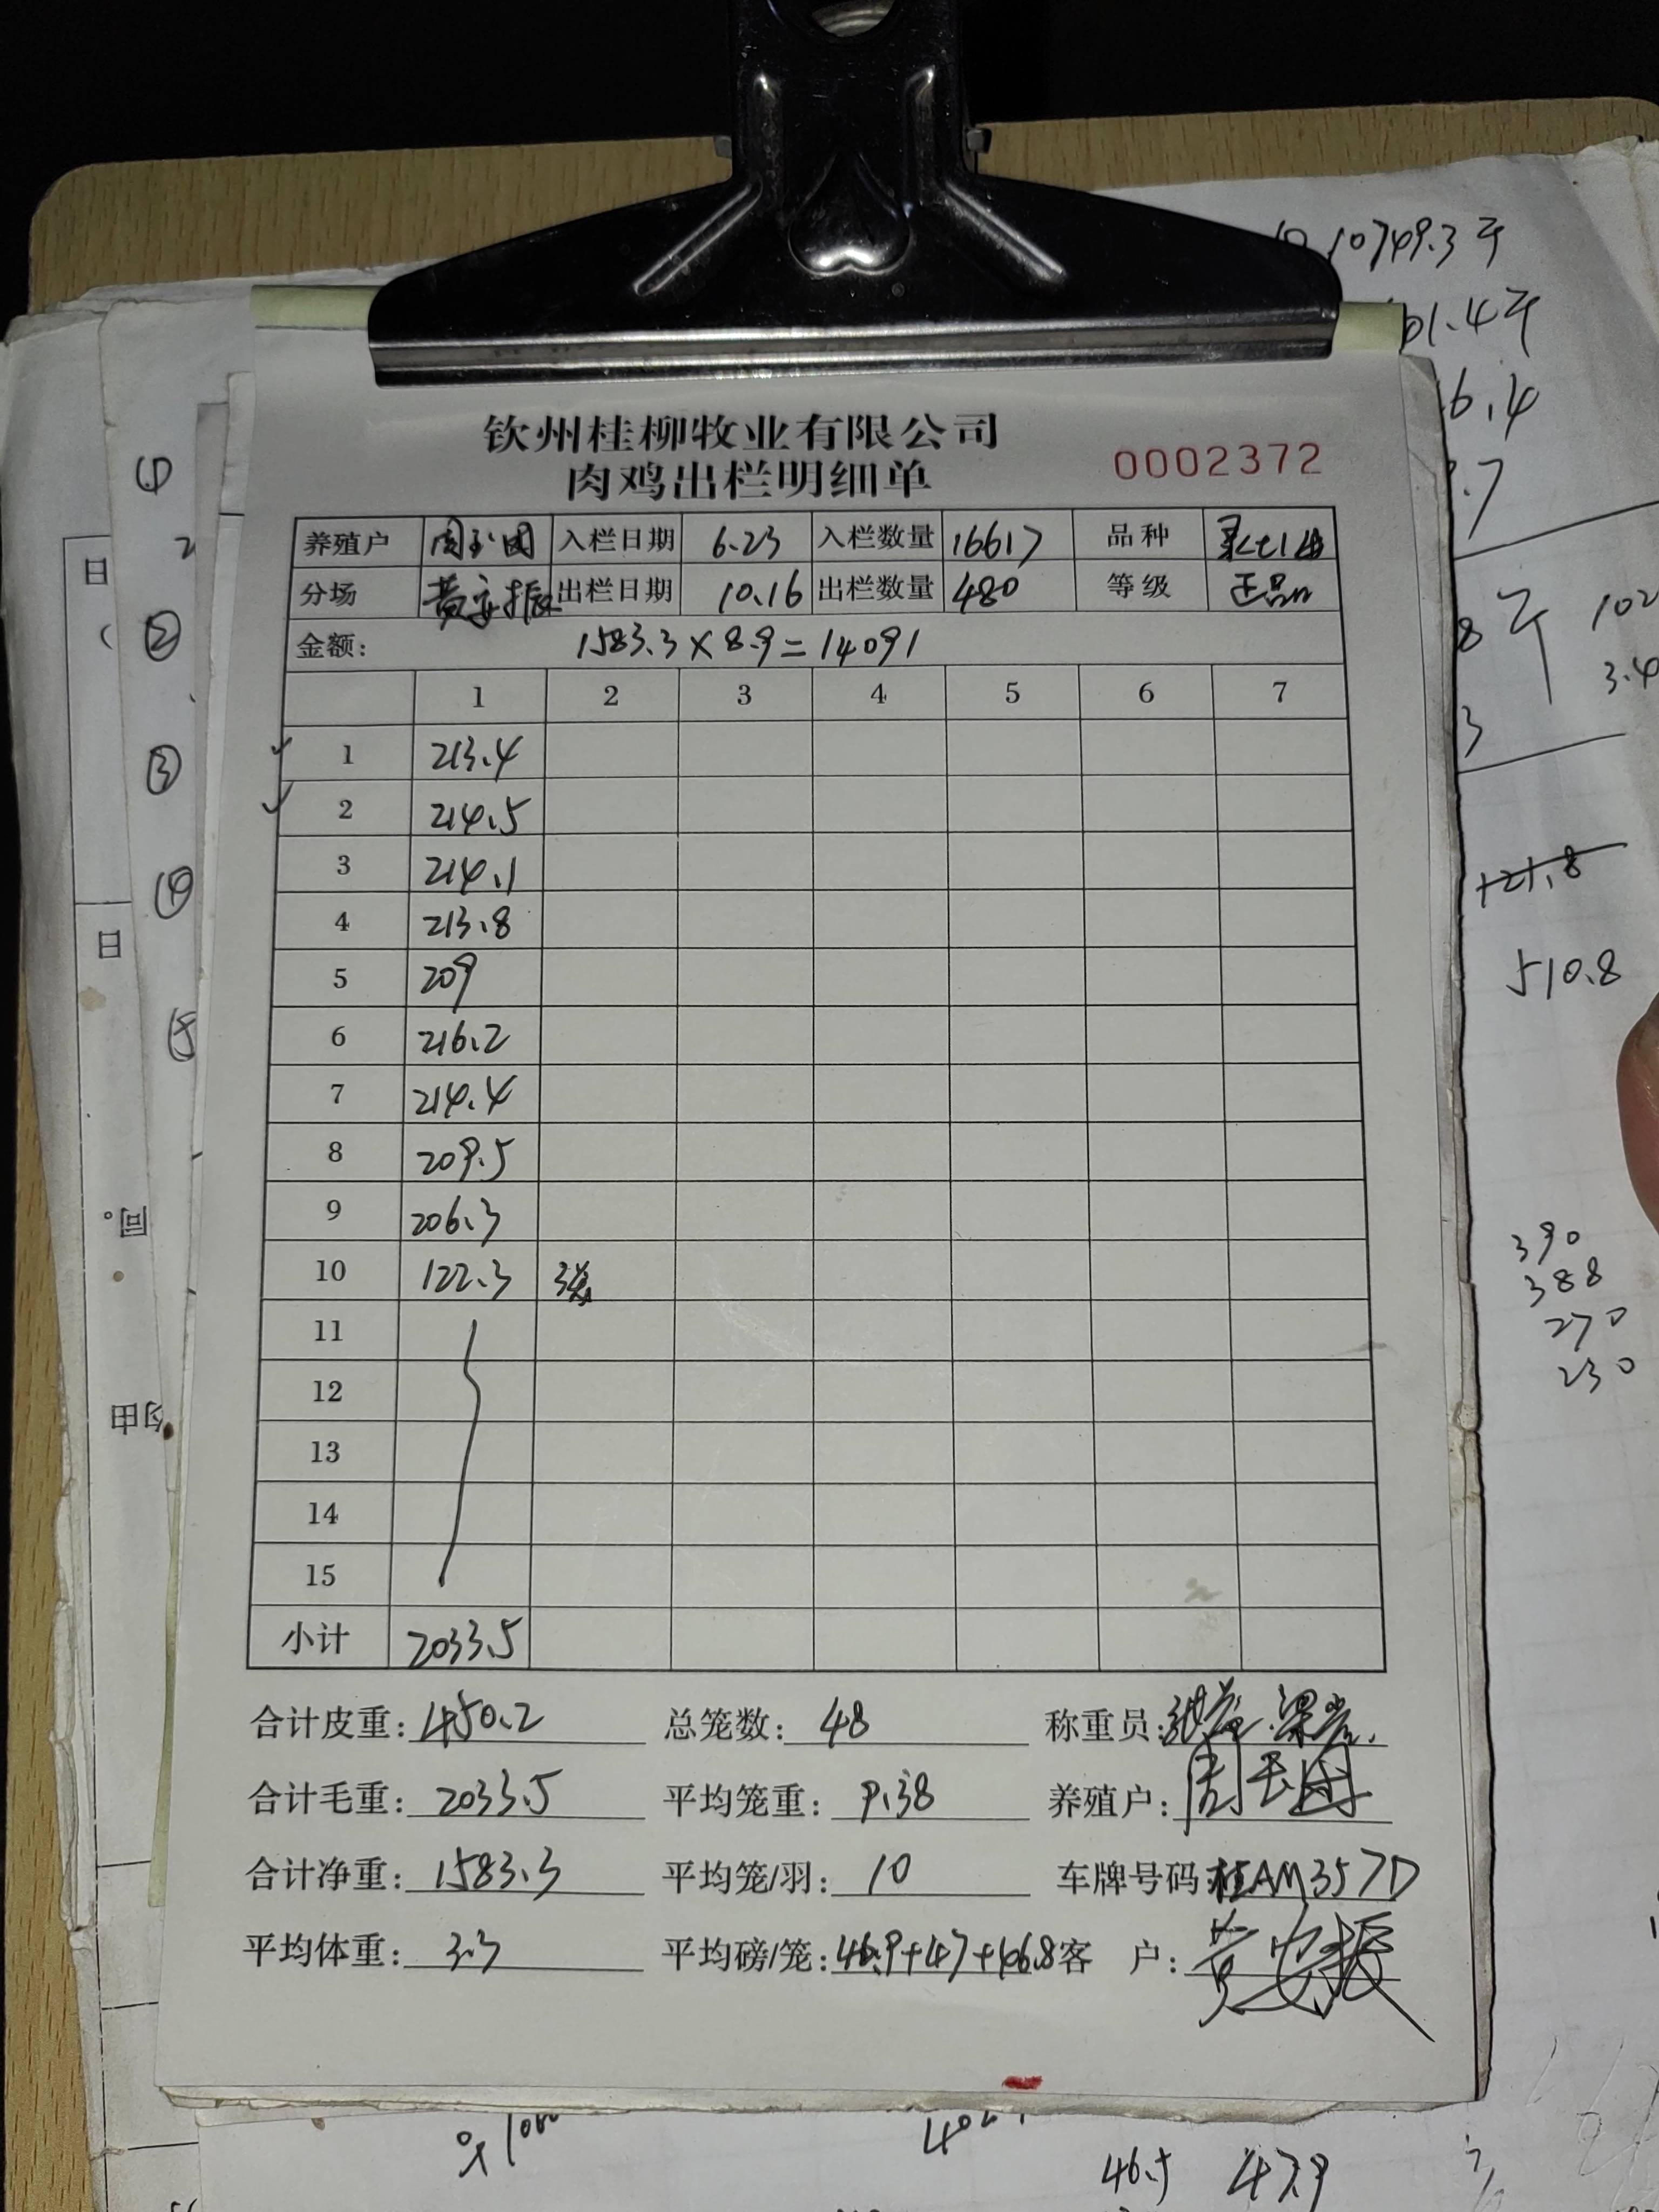 钦州桂柳牧业有限公司
肉鸡出栏明细单 0002372
养殖户 周玉团 入栏日期 6.23 入栏数量 16617 品种
分场 黄安振 出栏日期 10.16 出栏数量 480 等级 正品
金额: 1583.3×8.9=14091
1 2 3 4 5 6 7
1 213.4
2 214.5
3 214.1
4 213.8
5 209
6 216.2
7 214.4
8 209.5
9 206.3
10 122.3 3笼
11
12
13
14
15
小计 2033.5
合计皮重: 450.2 总笼数: 48 称重员:
合计毛重: 2033.5 平均笼重: 9.38 养殖户: 周玉团
合计净重: 1583.3 平均笼/羽: 10 车牌号码: 桂AM357D
平均体重: 3.3 平均磅/笼: 46.9+47+46.8 客 户: 黄安振
10749.3斤
01.4斤
6.4
.7
8
102
3.4
3
121.8
510.8
390
388
270
230
①
2
②
③
④
⑤
日
日
同。
匀由
46.5 47.9